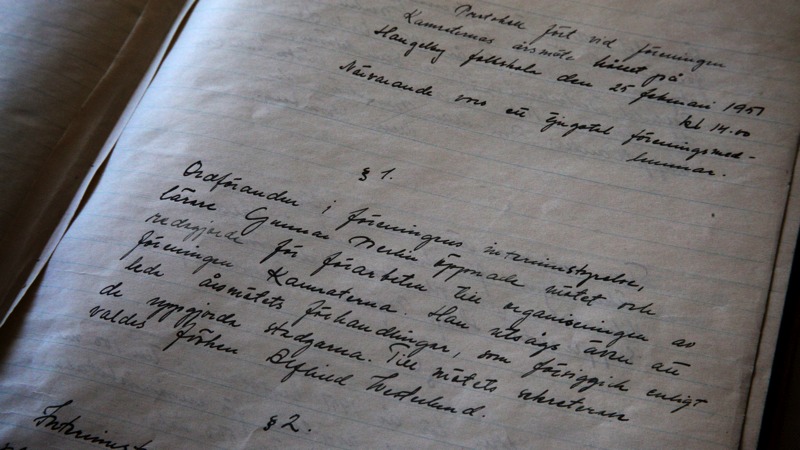 Protokoll fört vid föreningen
Kamraternas årsmöte hållet på
Hangelby folkskola den 25 februari 1951
kl 14.00
Närvarande voro ett tjugotal föreningsmed-
lemmar.
§ 1.
Ordföranden i föreningens interimstyrelse,
lärare Gunnar Berlin öppnade mötet och
redogjorde för förarbeten till organiseringen av
föreningen Kamraterna. Han utsågs även att
leda årsmötets förhandlingar, som försiggick enligt
de uppgjorda stadgarna. Till mötets sekreterare
valdes fröken Elfried Westerlund.
§ 2.